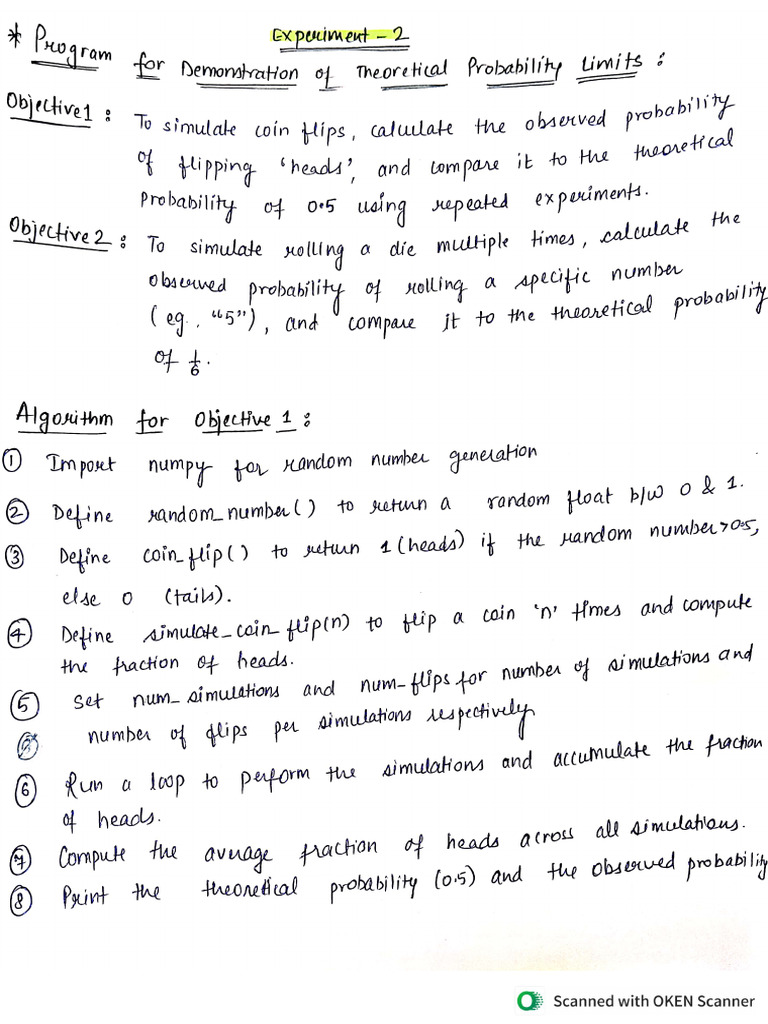 Experiment - 2
* Program for Demonstration of Theoretical Probability Limits :
Objective 1 : To simulate coin flips, calculate the observed probability
of flipping 'heads', and compare it to the theoretical
probability of 0.5 using repeated experiments.
Objective 2 : To simulate rolling a die multiple times, calculate the
observed probability of rolling a specific number
( eg., "5"), and compare it to the theoretical probability
of 1/6.
Algorithm for Objective 1 :
① Import numpy for random number generation
② Define random_number() to return a random float b/w 0 & 1.
③ Define coin_flip() to return 1 (heads) if the random number > 0.5,
else 0 (tails).
④ Define simulate_coin_flip(n) to flip a coin 'n' times and compute
the fraction of heads.
⑤ Set num_simulations and num_flips for number of simulations and
number of flips per simulations respectively
⑥ Run a loop to perform the simulations and accumulate the fraction
of heads.
⑦ Compute the average fraction of heads across all simulations.
⑧ Print the theoretical probability (0.5) and the observed probability
Scanned with OKEN Scanner